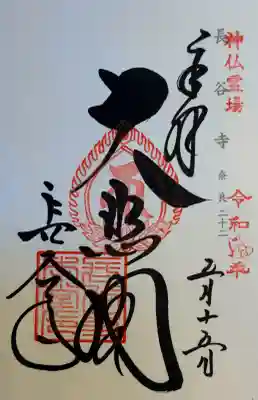 神仏霊場
長谷寺 奈良二十二
令和元年
五月十五日
奉拝
大悲閣
長谷寺